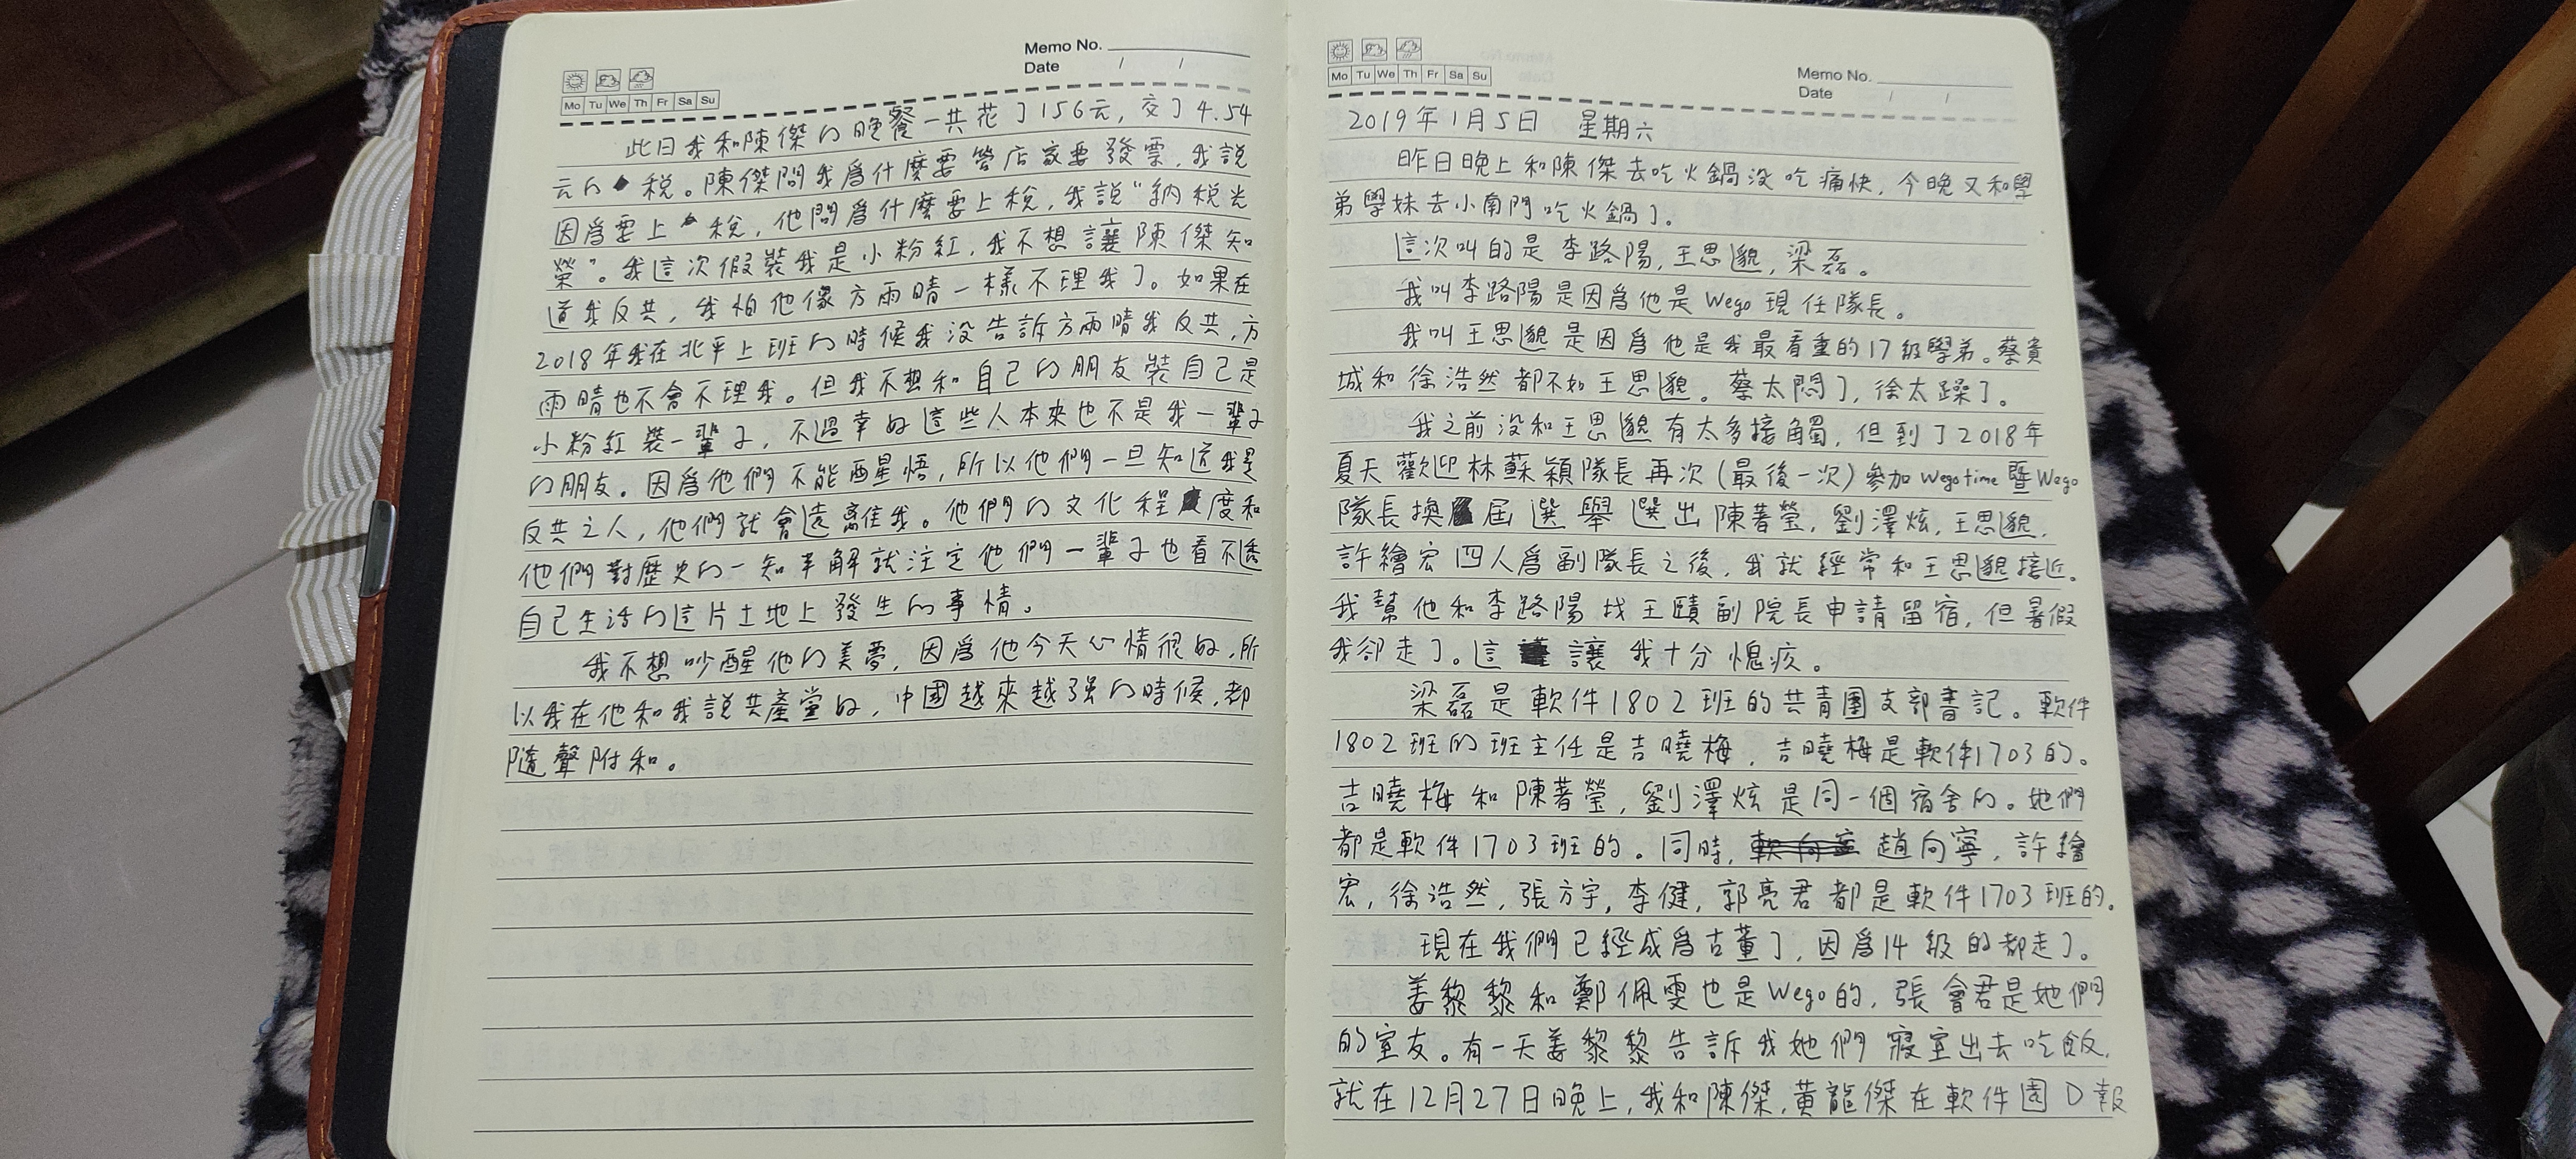 Memo No.
Date / /
Mo Tu We Th Fr Sa Su
此日我和陳傑的晚餐一共花了156元,交了4.54
元的稅。陳傑問我爲什麼要管店家要發票,我說
因爲要上稅,他問爲什麼要上稅,我說“納稅光
榮”。我這次假裝我是小粉紅,我不想讓陳傑知
道我反共,我怕他像方雨晴一樣不理我了。如果在
2018年我在北平上班的時候我没告訴方雨晴我反共,方
雨晴也不會不理我。但我不想和自己的朋友裝自己是
小粉紅裝一輩子,不過幸好這些人本來也不是我一輩子
的朋友。因爲他們不能醒悟,所以他們一旦知道我是
反共之人,他們就會遠離我。他們的文化程度和
他們對歷史的一知半解就注定他們一輩子也看不透
自己生活的這片土地上發生的事情。
我不想吵醒他的美夢,因爲他今天心情很好,所
以我在他和我說共產黨好,中國越來越强的時候,都
隨聲附和。
Mo Tu We Th Fr Sa Su
Memo No.
Date / /
2019年1月5日 星期六
昨日晚上和陳傑去吃火鍋没吃痛快,今晚又和學
弟學妹去小南門吃火鍋了。
這次叫的是李路陽,王思邈,梁磊。
我叫李路陽是因爲他是Wego現任隊長。
我叫王思邈是因爲他是我最看重的17級學弟。蔡貴
城和徐浩然都不如王思邈。蔡太悶了,徐太躁了。
我之前没和王思邈有太多接觸,但到了2018年
夏天歡迎林蘇穎隊長再次(最後一次)參加Wegotime暨Wego
隊長換屆選舉選出陳著瑩,劉澤炫,王思邈,
許繪宏四人爲副隊長之後,我就經常和王思邈接近。
我幫他和李路陽找王賾副院長申請留宿,但暑假
我卻走了。這讓我十分愧疚。
梁磊是軟件1802班的共青團支部書記。軟件
1802班的班主任是吉曉梅,吉曉梅是軟件1703的。
吉曉梅和陳著瑩,劉澤炫是同一個宿舍的。她們
都是軟件1703班的。同時,趙向寧,許繪
宏,徐浩然,張方宇,李健,郭亮君都是軟件1703班的。
現在我們已經成爲古董了,因爲14級的都走了。
姜黎黎和鄭佩雯也是Wego的,張會君是她們
的室友。有一天姜黎黎告訴我她們寢室出去吃飯,
就在12月27日晚上,我和陳傑,黄龍傑在軟件園D報